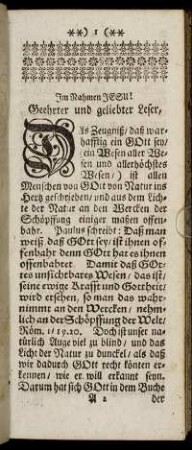 **) 1 (**
Im Nahmen JESU!
Geehrter und geliebter Leser,
DAs Zeugniß/ daß war-
hafftig ein GOtt sey/
(ein Wesen aller We-
sen und allerhöchstes
Wesen/) ist allen
Menschen von GOtt von Natur ins
Hertz geschrieben/ und aus dem Lich-
te der Natur an den Wercken der
Schöpffung einiger maßen offen-
bahr. Paulus schreibt: Daß man
weiß daß GOtt sey/ ist ihnen of-
fenbahr denn GOtt hat es ihnen
offenbahret. Damit daß GOt-
tes unsichtbares Wesen/ das ist/
seine ewige Krafft und Gottheit/
wird ersehen, so man das wahr-
nimmt an den Wercken/ nehm-
lich an der Schöpffung der Welt/
Röm. 1/19.20. Doch ist unser na-
türlich Auge viel zu blind/ und das
Licht der Natur zu dunckel/ als daß
wir dadurch GOtt recht könten er-
kennen/ wie er will erkannt seyn.
Darum hat sich GOtt in dem Buche
A 2 der